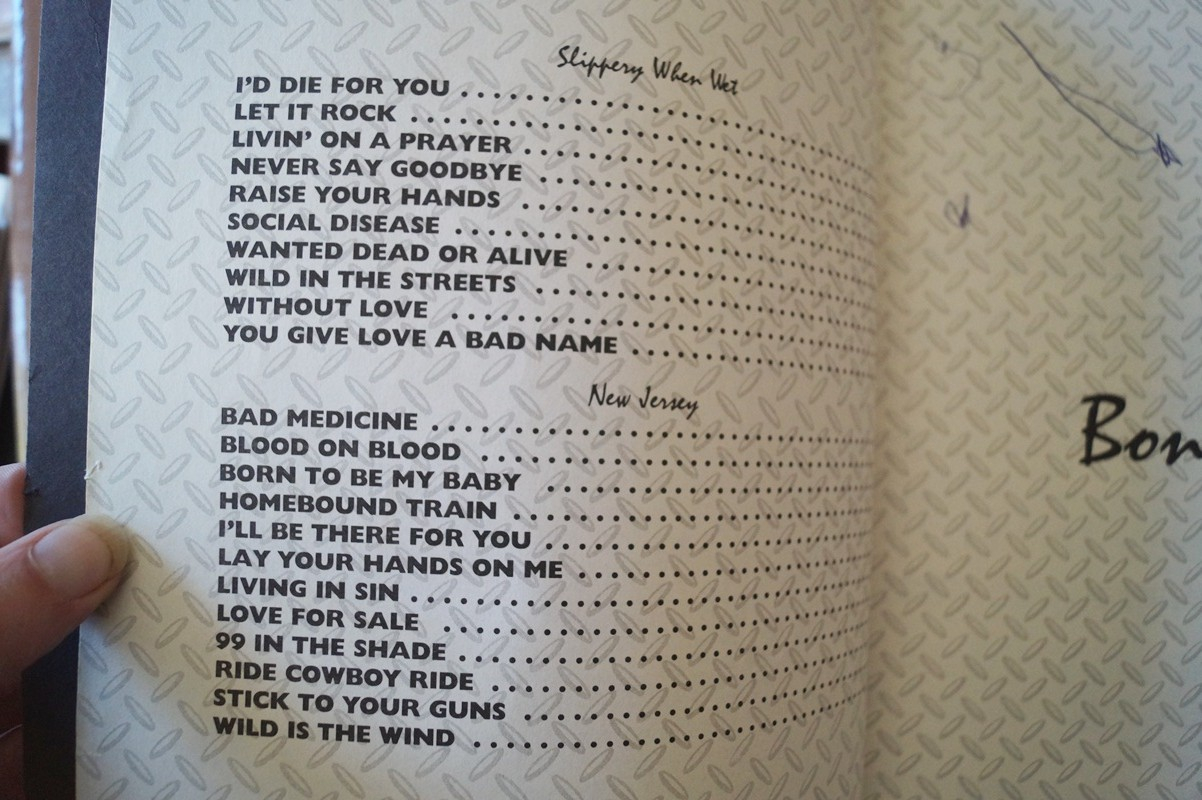 Slippery When Wet
I'D DIE FOR YOU
LET IT ROCK
LIVIN' ON A PRAYER
NEVER SAY GOODBYE
RAISE YOUR HANDS
SOCIAL DISEASE
WANTED DEAD OR ALIVE
WILD IN THE STREETS
WITHOUT LOVE
YOU GIVE LOVE A BAD NAME
New Jersey
BAD MEDICINE
BLOOD ON BLOOD
BORN TO BE MY BABY
HOMEBOUND TRAIN
I'LL BE THERE FOR YOU
LAY YOUR HANDS ON ME
LIVING IN SIN
LOVE FOR SALE
99 IN THE SHADE
RIDE COWBOY RIDE
STICK TO YOUR GUNS
WILD IS THE WIND
Bon